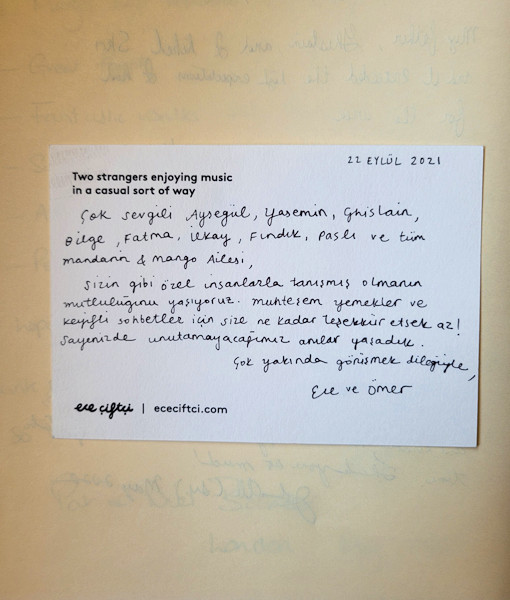 22 EYLÜL 2021
Two strangers enjoying music
in a casual sort of way
Çok sevgili Ayşegül, Yasemin, Ghislain,
Bilge, Fatma, İlkay, Fındık, Paslı ve tüm
mandarin & mango Ailesi,
Sizin gibi özel insanlarla tanışmış olmanın
mutluluğunu yaşıyoruz. muhteşem yemekler ve
keyifli sohbetler için size ne kadar teşekkür etsek az!
Sayenizde unutamayacağımız anılar yaşadık.
Çok yakında görüşmek dileğiyle,
Ece ve Ömer
ece çiftçi | ececiftci.com